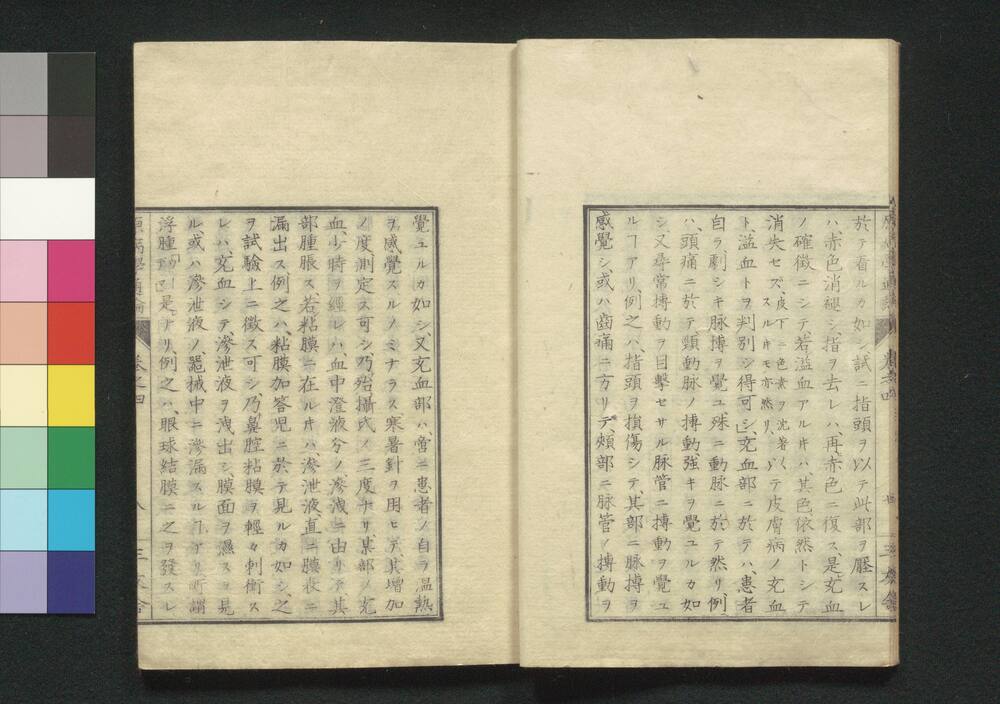 於テ看ルカ如シ試ニ指頭ヲ以テ此部ヲ壓スレ
ハ、赤色消褪シ指ヲ去レハ、再赤色ニ復ス、是充血
ノ確徴ニシテ、若溢血アルキハ其色依然トシテ
消失セズ、皮下ニ色素ヲ沈著スルキモ亦然リ、以テ皮膚病ノ充血
ト、溢血トヲ判別シ得可シ」充血部ニ於テハ、患者
自ラ劇シキ脉搏ヲ覺ユ殊ニ動脉ニ於テ然リ、例
ハ、頭痛ニ於テ、頸動脉ノ搏動強キヲ覺ユルカ如
シ、又尋常搏動ヲ目擊セサル脉管ニ搏動ヲ覺ユ
ルヿアリ例之ハ、指頭ヲ損傷シテ其部ニ脉搏ヲ
感覺シ或ハ齒痛ニ方リテ、頰部ニ脉管ノ搏動ヲ
覺ユルカ如シ、又充血部ハ、當ニ患者ノ自ラ温熱
ヲ感覺スルノミナラス寒暑針ヲ用ヒテ、其增加
ノ度測定ス可シ乃殆攝氏ノ三度ナリ某部ノ充
血、少時ヲ經レハ血中澄液分ノ滲洩ニ由リテ其
部腫脹ス若粘膜ニ在ルキハ、滲泄液直ニ膜表ニ
漏出ス例之ハ、粘膜加答兒ニ於テ見ルカ如シ、之
ヲ試驗上ニ徵ス可シ、乃鼻腔粘膜ヲ輕々刺衝ス
レハ、充血シテ、滲泄液ヲ洩出シ、膜面ヲ濕スヲ見
ル或ハ滲泄液ノ噐械中ニ滲漏スルヿアリ所謂
浮腫是ナリ、例之ハ、眼球結膜ニ之ヲ發スレ
卷之四 八 三友舍